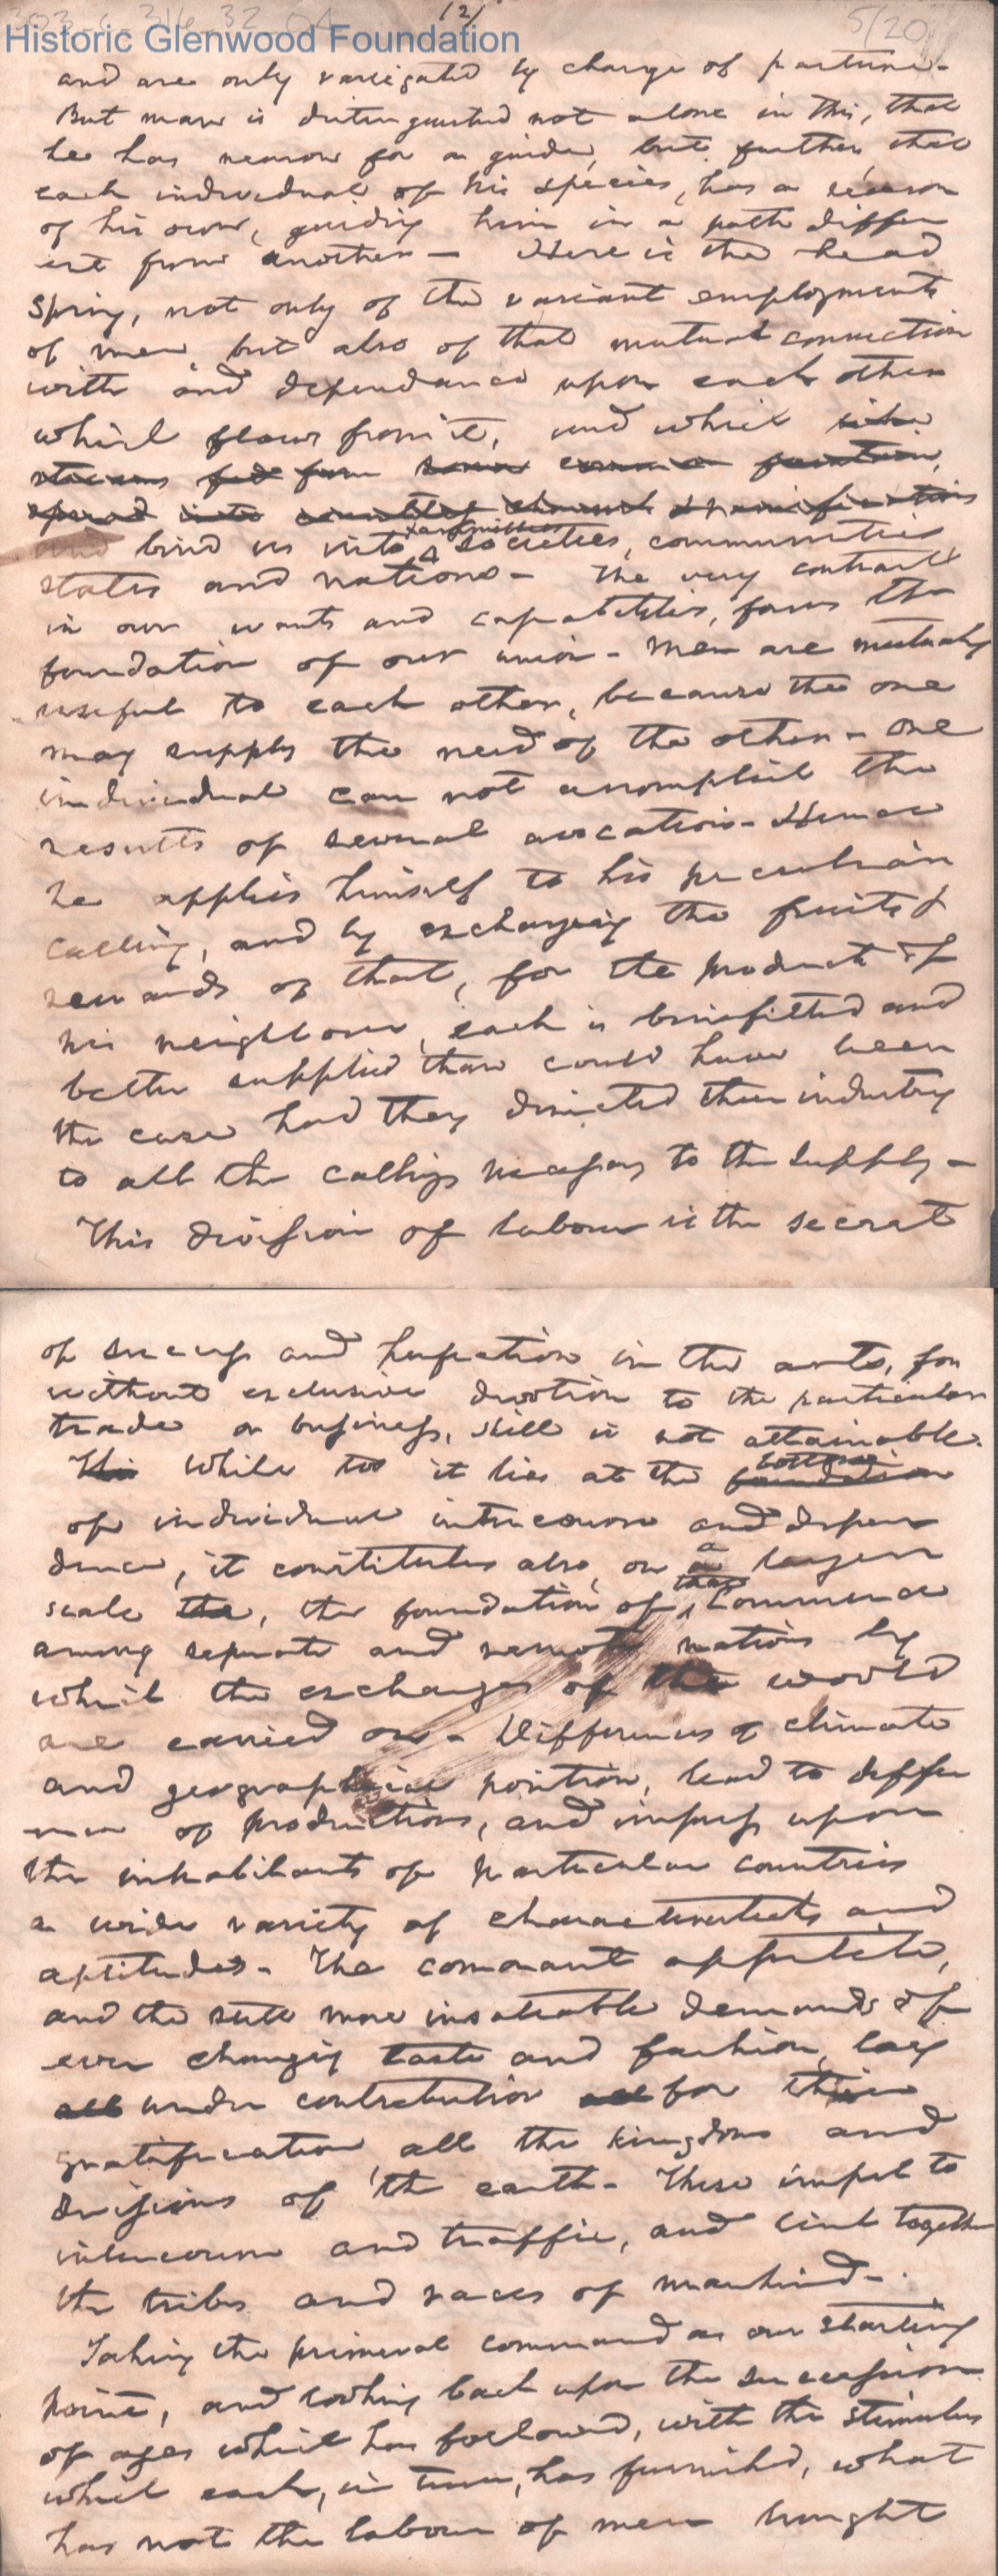 303-C-316-32-04 /2/ 5/20
Historic Glenwood Foundation
and are only variegated by change of pasture.
But man is distinguished not alone in this, that
he has reason for a guide, but further that
each individual of his species, has a reason
of his own, guiding him in a path differ
ent from another - Here is the head
spring, not only of the variant employments
of men but also of that mutual connection
with and dependance upon each other
which flows from it, and which like
streams fed from some common fountain,
spread into countless channels & ramifications
and bind us into families societies, communities
states and nations - The very contrast
in our wants and capabilities, forms the
foundation of our union - Men are mutually
useful to each other, because the one
may supply the need of the other - One
individual can not accomplish the
results of several avocations - Hence
he applies himself to his peculiar
calling, and by exchanging the fruits &
rewards of that, for the product of
his neighbour, each is benefitted and
better supplied than could have been
the case had they directed their industry
to all the callings necessary to the supply -
This division of labour is the secret
of success and perfection in the arts, for
without exclusive devotion to the particular
trade or business, skill is not attainable.
This While too it lies at the foundation bottom
of individual intercourse and depen
dence, it constitutes also, on a larger
scale the, the foundation of that Commerce
among separate and remote nations by
which the exchanges of the world
are carried on - Differences of climate
and geographical position, lead to differ
of productions, and impress upon
the inhabitants of particular countries
a wide variety of characteristics and
aptitudes - The appetite,
and the still more insatiable demands of
ever changing taste and fashion, lay
all under contribution all for their
gratification, all the kingdoms and
divisions of the earth - These impel to
intercourse and traffic, and link together
the tribes and races of mankind -
Taking the primeval command as our starting
point, and looking back upon the succession
of ages which has followed, with the stimulus
which each, in turn, has furnished, what
has not the labour of men wrought